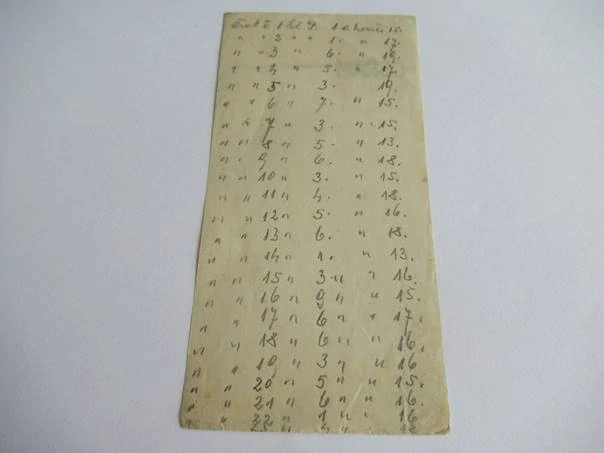 1 15.
" " 2 " " 1. " 17.
" " 3 " 6. " 19.
" " 4 " 5. " 17.
" " 5 " 3. 19.
" " 6 " 7. " 15.
" " 7 " 3. " 15.
" " 8 " 5. " 13.
" " 9 " 6. " 18.
" " 10 " 3. " 15.
" " 11 " 4. " 18.
" " 12 " 5. " 16.
" " 13 " 6. " 18.
" " 14 " 1. " 13.
" " 15 " 3 " " 16.
" " 16 " 9 " " 15.
" " 17 " 6 " " 17.
" " 18 " 6 " " 16.
" " 19 " 3 " " 16
" " 20 " 5 " " 15.
" " 21 " 6 " " 16.
" " 22 " 1 " " 16